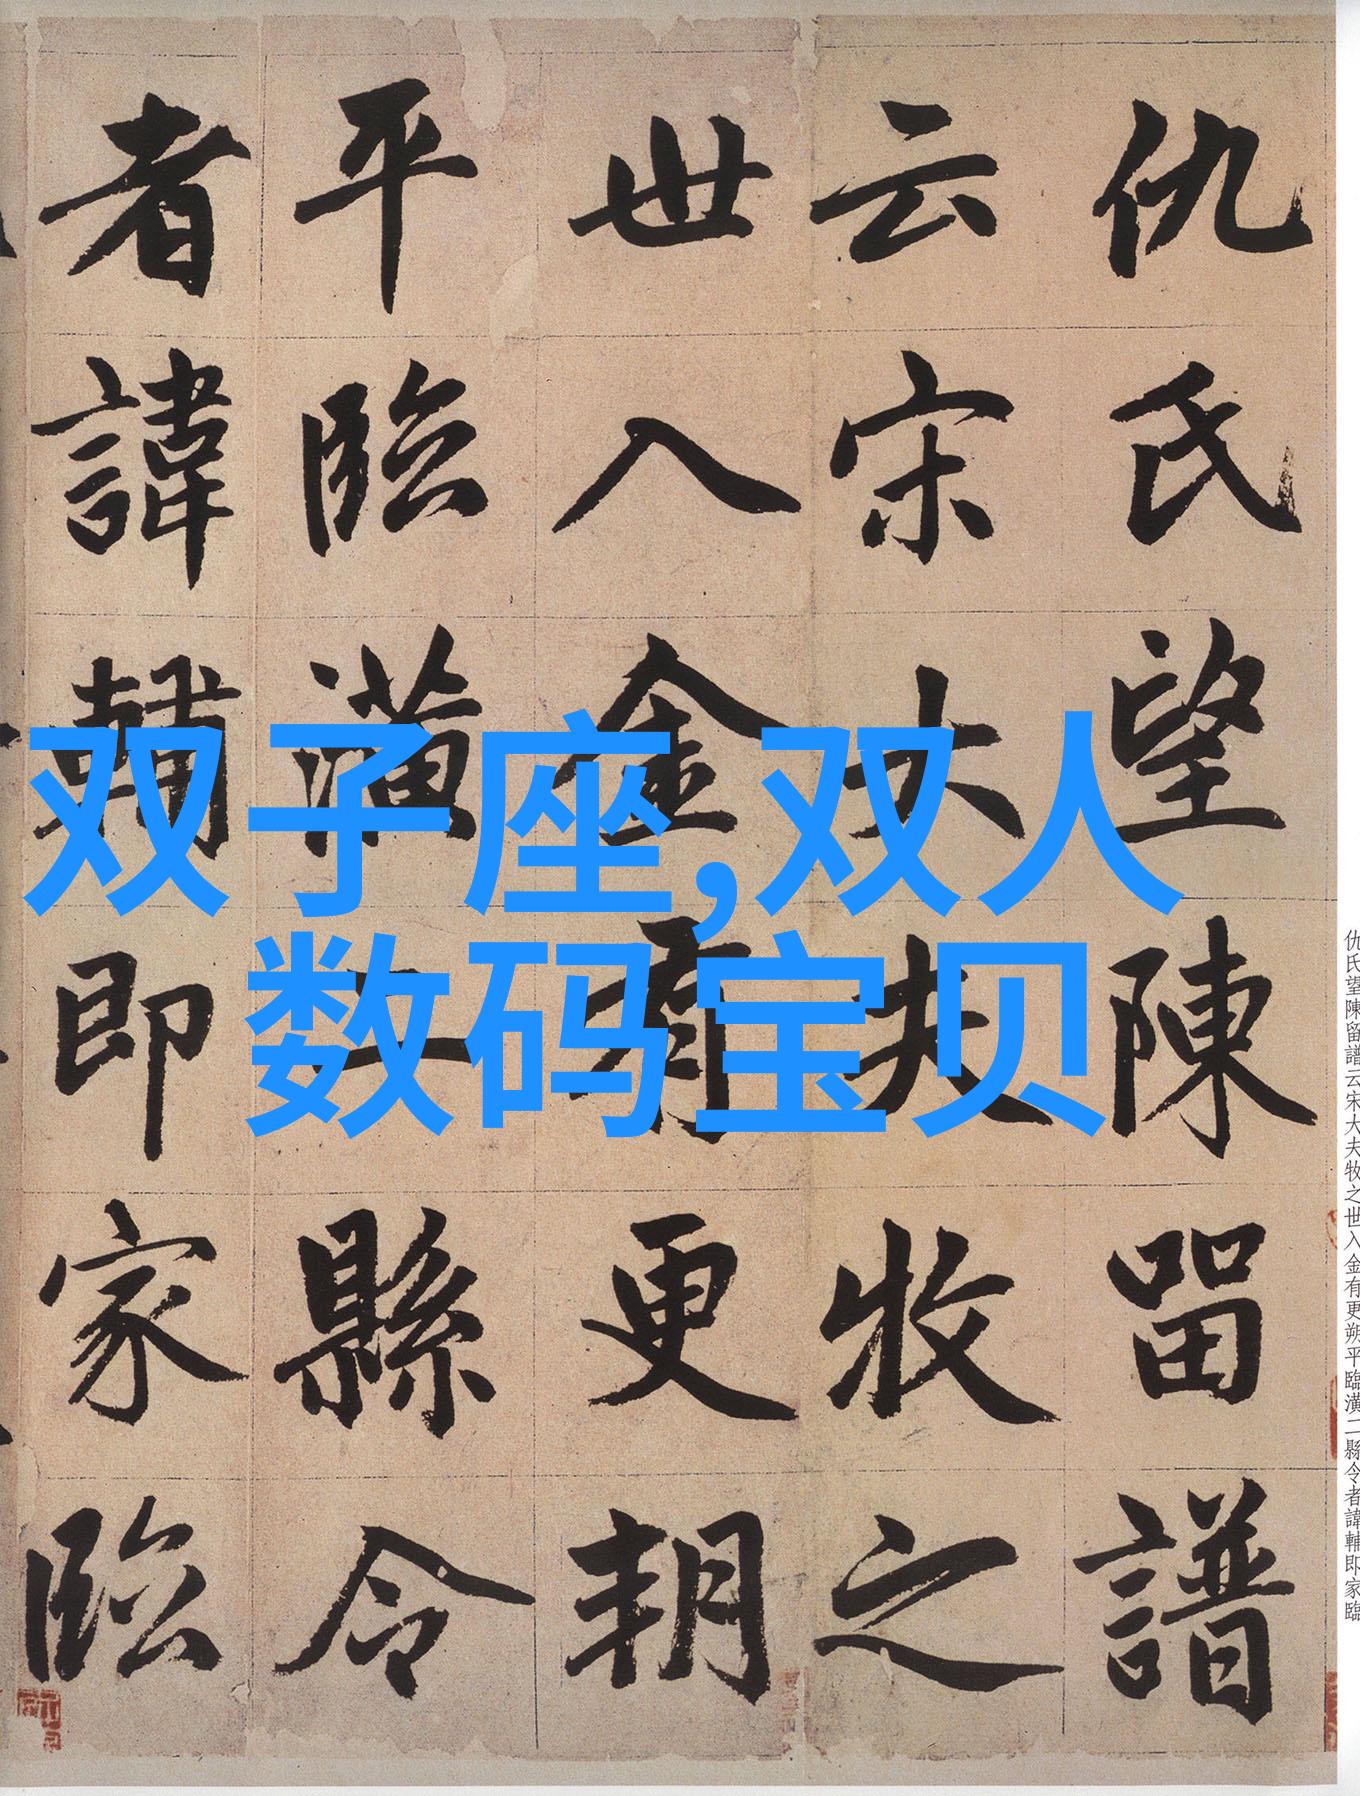 仇氏望陳留譜
云宋大夫牧之
世入金有更朔
平臨潢二縣令
者諱輔即家臨
双子座,双人
数码宝贝
仇氏望陳留譜云宋大夫牧之世入金有更朔平臨潢二縣令者諱輔即家臨